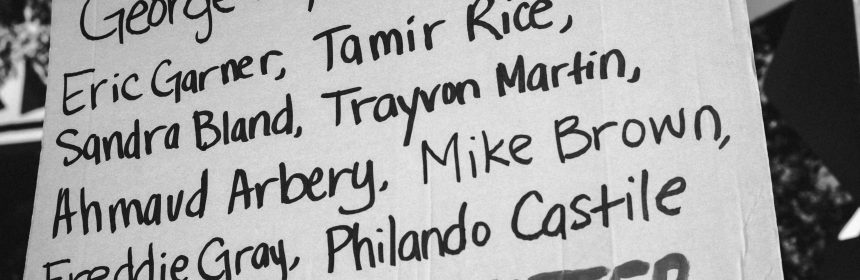 George
Eric Garner, Tamir Rice,
Sandra Bland, Trayvon Martin,
Ahmaud Arbery, Mike Brown,
Freddie Gray, Philando Castile